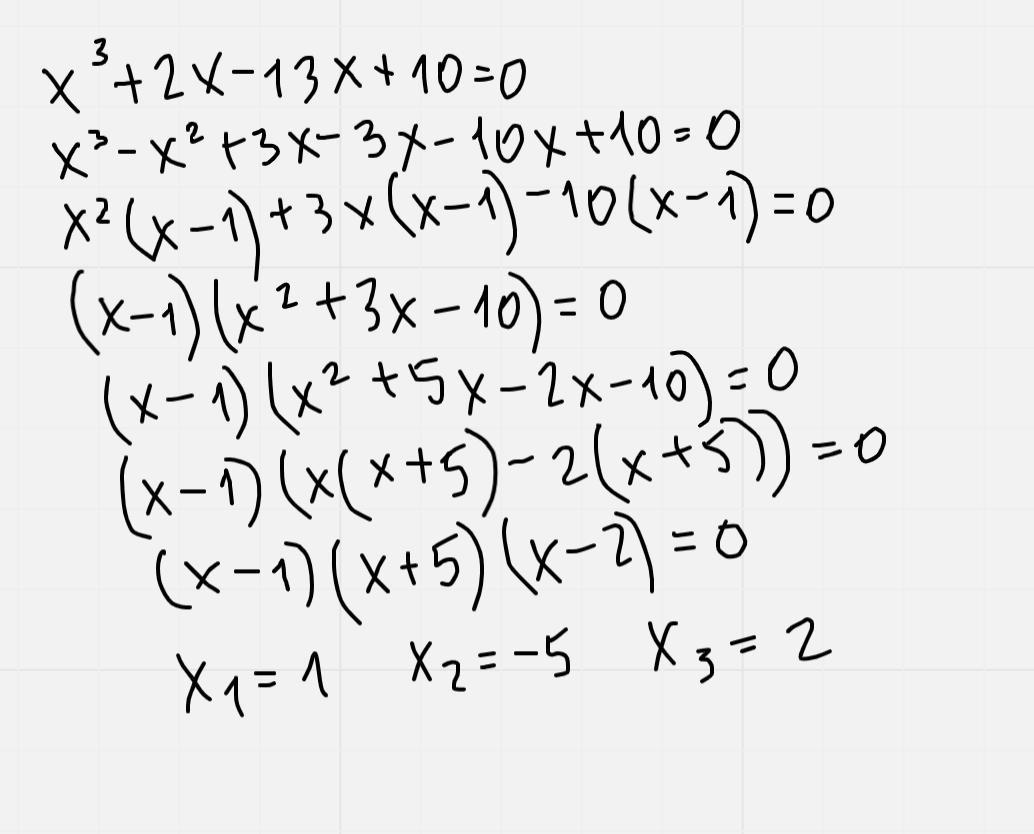 x³+2x-13x+10=0
x³-x²+3x-3x-10x+10=0
x²(x-1)+3x(x-1)-10(x-1)=0
(x-1)(x²+3x-10)=0
(x-1)(x²+5x-2x-10)=0
(x-1)(x(x+5)-2(x+5))=0
(x-1)(x+5)(x-2)=0
x₁=1 x₂=-5 x₃=2